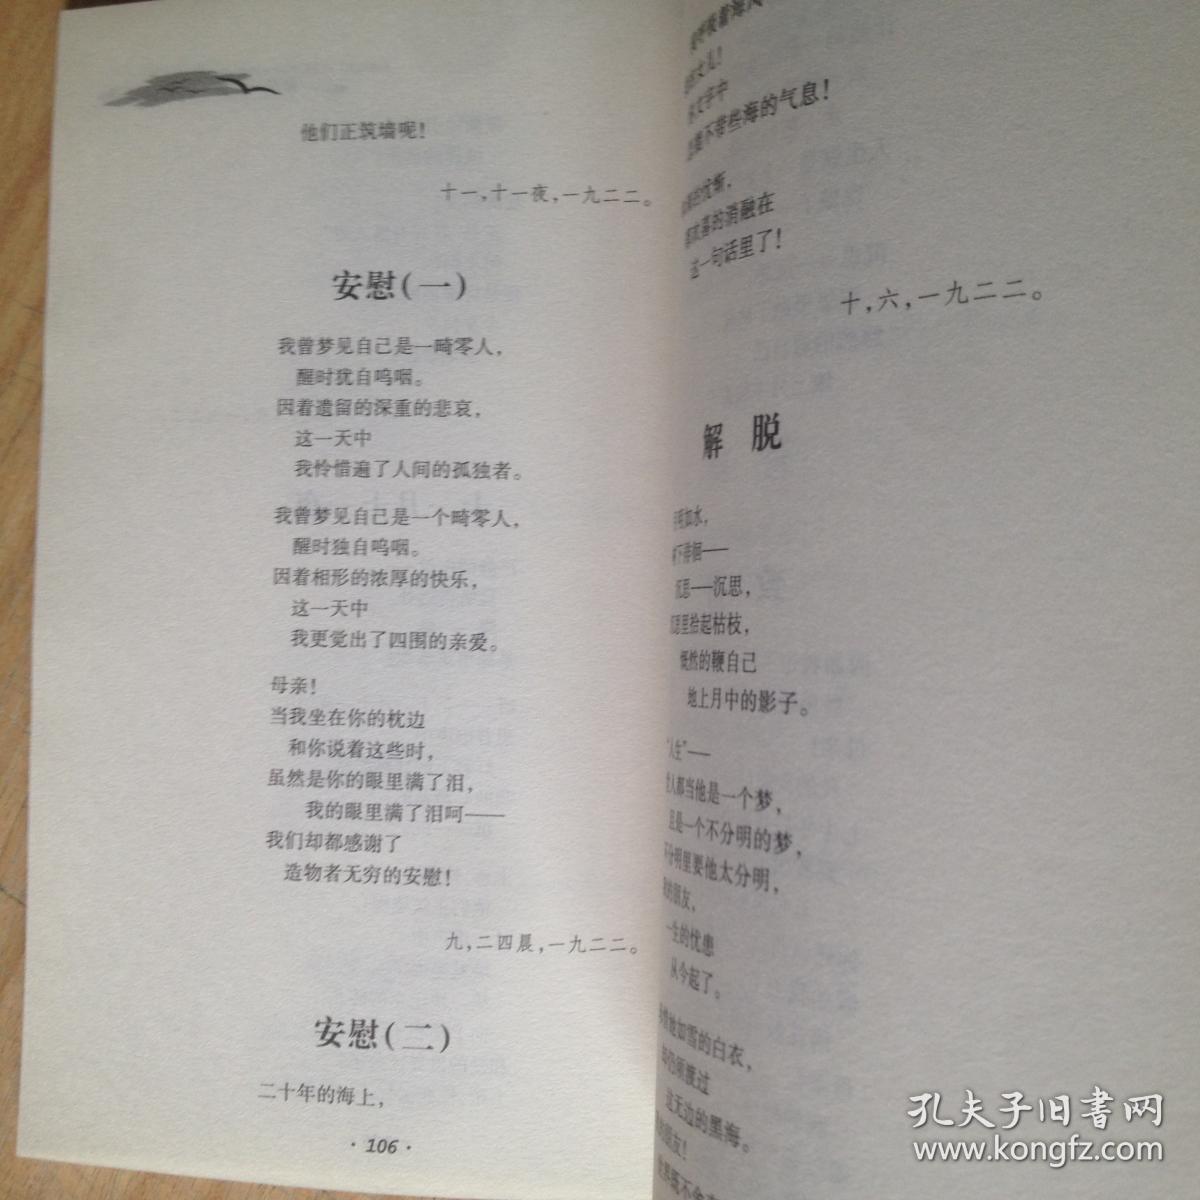 他们正筑墙呢！
十一，十一夜，一九二二。
安慰（一）
我曾梦见自己是一畸零人，
醒时犹自呜咽。
因着遗留的深重的悲哀，
这一天中
我怜惜遍了人间的孤独者。
我曾梦见自己是一个畸零人，
醒时独自呜咽。
因着相形的浓厚的快乐，
这一天中
我更觉出了四围的亲爱。
母亲！
当我坐在你的枕边
和你说着这些时，
虽然是你的眼里满了泪，
我的眼里满了泪呵——
我们却都感谢了
造物者无穷的安慰！
九，二四晨，一九二二。
安慰（二）
二十年的海上，
·106·
女儿！
文字中
不带些海的气息！
的忧惭，
喜的消融在
这一句话里了！
十，六，一九二二。
解 脱
明如水，
下徘徊——
沉思——沉思，
里拾起枯枝，
慨然的鞭自己
地上月中的影子。
“人生”——
人都当他是一个梦，
且是一个不分明的梦，
不分明里要他太分明，
的朋友，
一生的忧患
从今起了。
如雪的白衣，
却仍须渡过
这无边的黑海。
朋友！
孔夫子旧书网
www.kongfz.com